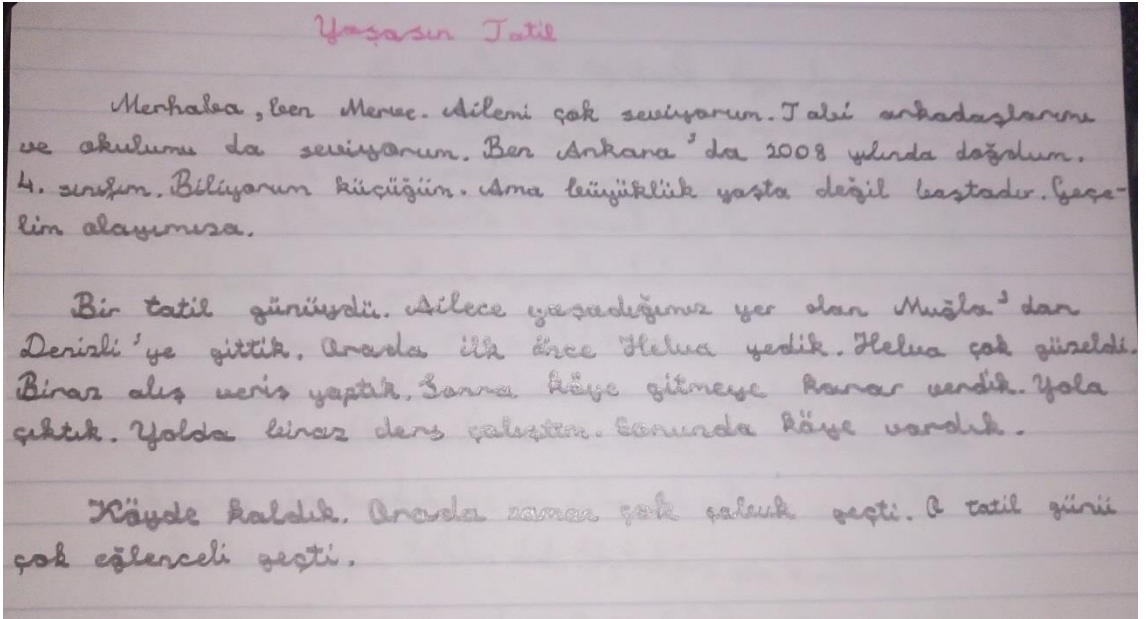 Yaşasın Tatil
Merhaba, ben Merve. Ailemi çok seviyorum. Tabi arkadaşlarımı
ve okulumu da seviyorum. Ben Ankara'da 2008 yılında doğdum.
4. sınıfım. Biliyorum küçüğüm. Ama büyüklük yaşta değil baştadır. Geçe-
lim olayımıza.
Bir tatil günüydü. Ailece yaşadığımız yer olan Muğla'dan
Denizli'ye gittik. Orada ilk önce Helva yedik. Helva çok güzeldi.
Biraz alış veriş yaptık. Sonra köye gitmeye karar verdik. Yola
çıktık. Yolda biraz ders çalıştım. Sonunda köye vardık.
Köyde kaldık. Orada zaman çok çabuk geçti. O tatil günü
çok eğlenceli geçti.